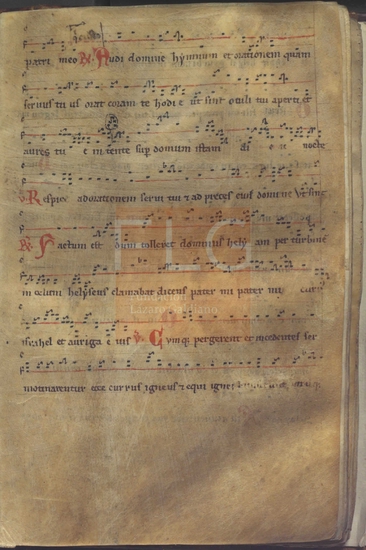 patri meo R Audi domine hymnum et orationem quam
servus tuus orat coram te hodie ut sint oculi tui aperti et
aures tue intente super domum istam die et nocte
V Respice ad orationem servi tui et ad preces eius domine Ut sint
R Factum est dum tolleret dominus helyam per turbinem
in celum helyseus clamabat dicens pater mi pater mi currus
israhel et auriga eius V Cumque pergerent et incedentes ser
mocinarentur ecce currus igneus et equi ignei
FLG
Lázaro Galdiano